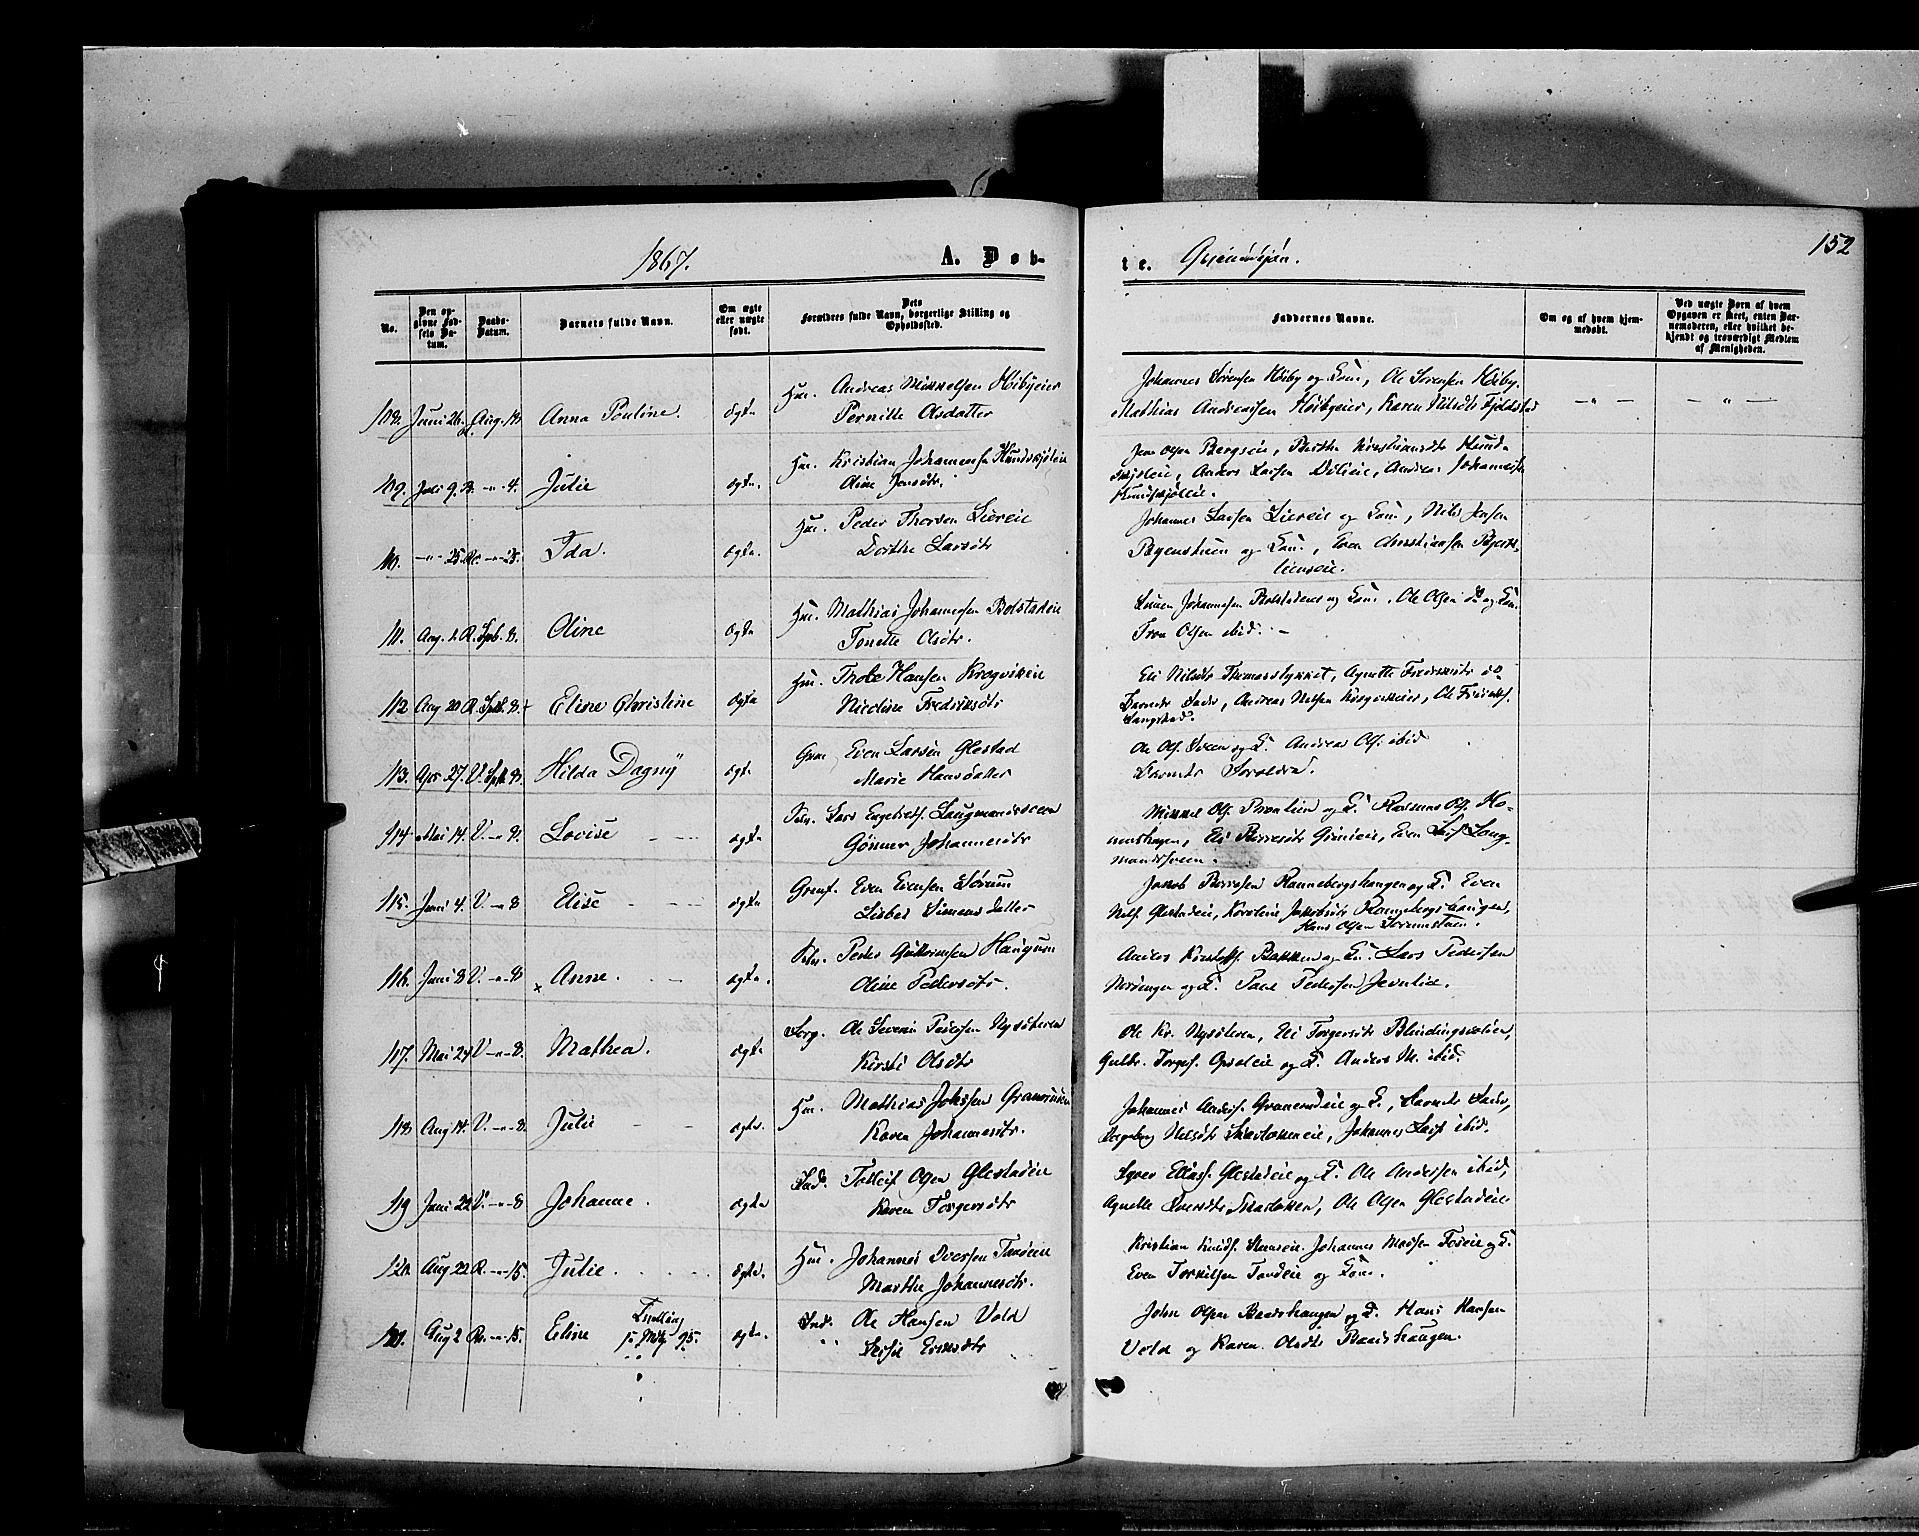 1867.
A. Døb-
te. Qvindekjøn.
152
No.
Den opgivne Fødsels Datum.
Daabs-Datum.
Barnets fulde Navn.
Om ægte eller uægte født.
Dets Forældres fulde Navn, borgerlige Stilling og Opholdssted.
Faddernes Navne.
Om og af hvem hjemmedøbt.
Ved uægte Børn af hvem Opgaven er skeet, enten Barnemoderen, eller hvilket bekjendt og troværdigt Medlem af Menigheden.
108. Juni 26. Aug. 18 Anna Pauline. ægte Hm. Andreas Mikkelsen Høibyeier
Pernille Olsdatter
Johannes Sørensen Høiby og Kone, Ole Sørensen Høiby.
Mathias Andreassen Høibyeier, Karen Nilsdtr Fjeldstad — " — — " —
109. Juli 9. - " - 4. Julie ægte. Hm. Kristian Johannesen Hundskjøleie
Oline Jensdtr.
Jens Olsen Bergseie, Berthe Kristiansdtr Hund-
skjøleie, Anders Larsen Dølieie, Andreas Johannesen
Hundskjøleie.
110. - " - 25. - " - 25. Ida. ægte. Hm. Peder Thorsen Liereie
Dorthe Larsdtr
Johannes Larsen Liereie og Kone, Nils Jensen
og Kone, Even Christiansen
111. Aug. 1. R. Sptb. 8. Oline ægte Hm. Mathias Johannesen Bolstadeie
Tonette Olsdtr.
Simen Johannesen Bolstadeie og Kone, Ole Olsen do og Kone.
Tron Olsen ibid. —
112 Aug 20 R. Sptb. 8. + Eline Christine ægte Hm. Thole Hansen Krogvikeie
Nicoline Fredriksdtr
Eli Nilsdtr Thomasstykket, Agnethe Fredriksdtr do
Barnets Fader, Andreas Nilsen Krogvikeier, Ole Fredriks.
Langstad.
113. Apr 27. V. Sptb. 8. Hilda Dagny ægte Gm. Even Larsen Glestad
Marie Hansdatter
Ole Ols. Sveen og K. Andreas Ols. ibid
Barnets Forældre.
114. Mai 14. V. - " - 8. Lovise ægte Lars Engebrets. Laugmandssveen
Gunner Johannesdtr
Mikkel Ols. Bronlien og K. Rasmus Ols. Ho-
Even Lars. Laug-
mandssveen.
115. Juni 4. V. - " - 8 Elise ægte Grmf. Even Evensen Sørum
Lisbet Simensdatter
Jakob Børresen Rannebergshaugen og K. Even
Nils. Glestadeie, Karoline Jakobsdtr Rannebergshaugen,
Hans Olsen Sørumstuen.
116. Juni 8 V. - " - 8 x Anne. ægte. Peder Guttormsen Haugum
Oline Pedersdtr.
Anders Kristoff. Bakken og K. Lars Pedersen
og K. Paul Pedersen
117. Mai 24 V. - " - 8. Mathea. ægte Ole Severin Pedersen Nysæteren
Kirsti Olsdtr
Ole Kr. Nysæteren, Eli Torgersdtr Blindingsvolien,
Gulbr. Torges. Opsaleie og K. Anders M. ibid.
118 Aug 14. V. - " - 8. Julie ægte. Hm. Mathias Johssen Granerudeie
Karen Johannesdtr.
Johannes Anders. Granerudeie og K., Barnets Fader,
Ingeborg Nilsdtr Skarlokkeneie, Johannes Lars. ibid.
119 Juni 22 V. - " - 8 Johanne. ægte Ind. Tolleif Olsen Glestadeie
Karen Torgersdtr
Syver Elias. Glestadeie og K. Ole Andersen ibid,
Agnethe Iversdtr Skarlokken, Ole Olsen Glestadeie
120. Aug 22 R. - " - 15. Julie ægte. Hm. Johannes Iversen Tandeie
Marthe Johannesdtr.
Kristian Knuds. Johannes Madsen Toseie og K.
Even Torkilsen Tandeie og Kone.
121. Aug 2 R. - " - 15. Eline ægte. Ind. Ole Hansen Vold
Sersie Ersesdtr
John Olsen Baadshaugen og K. Hans Hansen
Vold og Karen Olsdtr Baadshaugen.